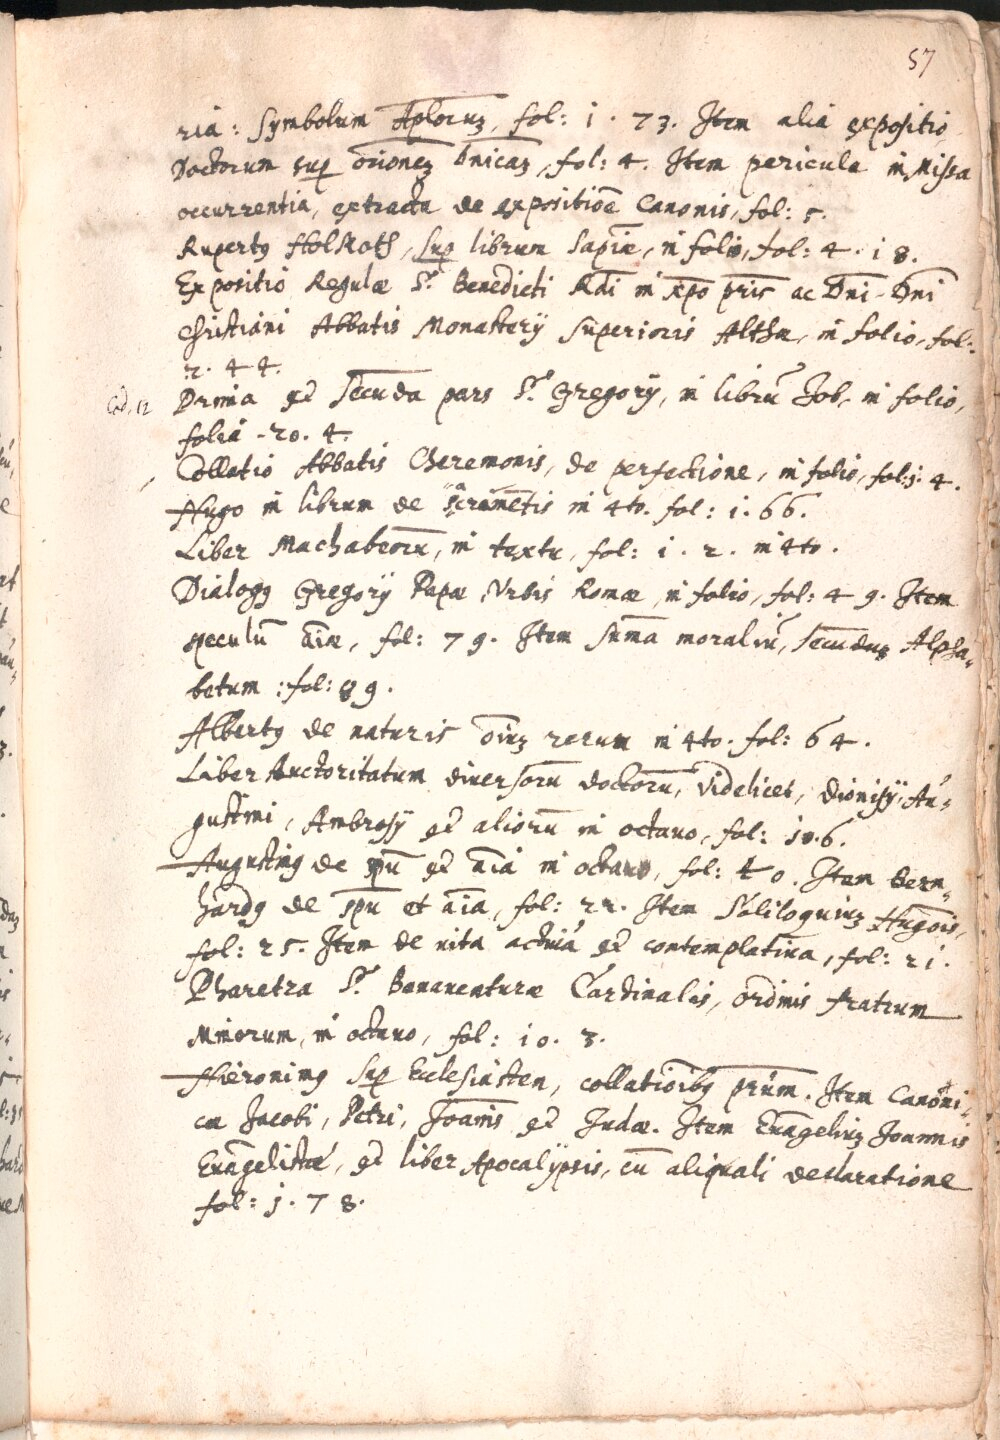 57
ria: Symbolum Aploruz, fol: 1. 73. Item alia expositio
Doctorum sup orionez Dnicaz, fol: 4. Item pericula in Missa
occurrentia, extracta de expositiōe Canonis, fol: 5.
Rupertq Holkoth, sup librum Sapiæ, in folio, fol: 4. 18.
Expositio Regulæ S. Benedicti Rdi in xpo pris ac Dni Dni
Christiani Abbatis Monasterÿ Superioris Althæ, in folio, fol:
2. 44.
Cod. 12 Prima et secunda pars S. Gregorÿ, in librū Job, in folio,
folia 20. 4.
Collatio Abbatis Cheremonis, de perfectione, in folio, fol: j. 4.
Hugo in librum de sacramētis in 4to. fol: 1. 66.
Liber Machabeorū, in textu, fol: 1. 2. in 4to.
Dialogq Gregorÿ Papæ Vrbis Romæ, in folio, fol: 49. Item
speculū aīæ, fol: 79. Item Sum̄a moraliū, secunduz Alpha-
betum: fol: 89.
Albertq de naturis oīuz rerum in 4to. fol: 64.
Liber Auctoritatum diuersorū doctorū, videlicet, Dionisÿ, Au-
gustini, Ambrosÿ et aliorū in octauo, fol: 10.6.
Augustinq de spū et aīa in octauo, fol: 40. Item Bern-
hardq de spū et aīa, fol: 22. Item Soliloquiuz Hugōis,
fol: 25. Item de vita actiua et contemplatiua, fol: 21.
Pharetra S. Bonauenturæ Cardinalis, ordinis fratrum
Minorum, in octauo, fol: 10. 8.
Hieronimq sup Ecclesiasten, collatioībq prūm. Item Canoni-
ca Jacobi, Petri, Joānis et Judæ. Item Euāgeliuz Joannis
Euāgelistæ, et liber Apocalÿpsis, cū aliquali declaratione
fol: j. 78.